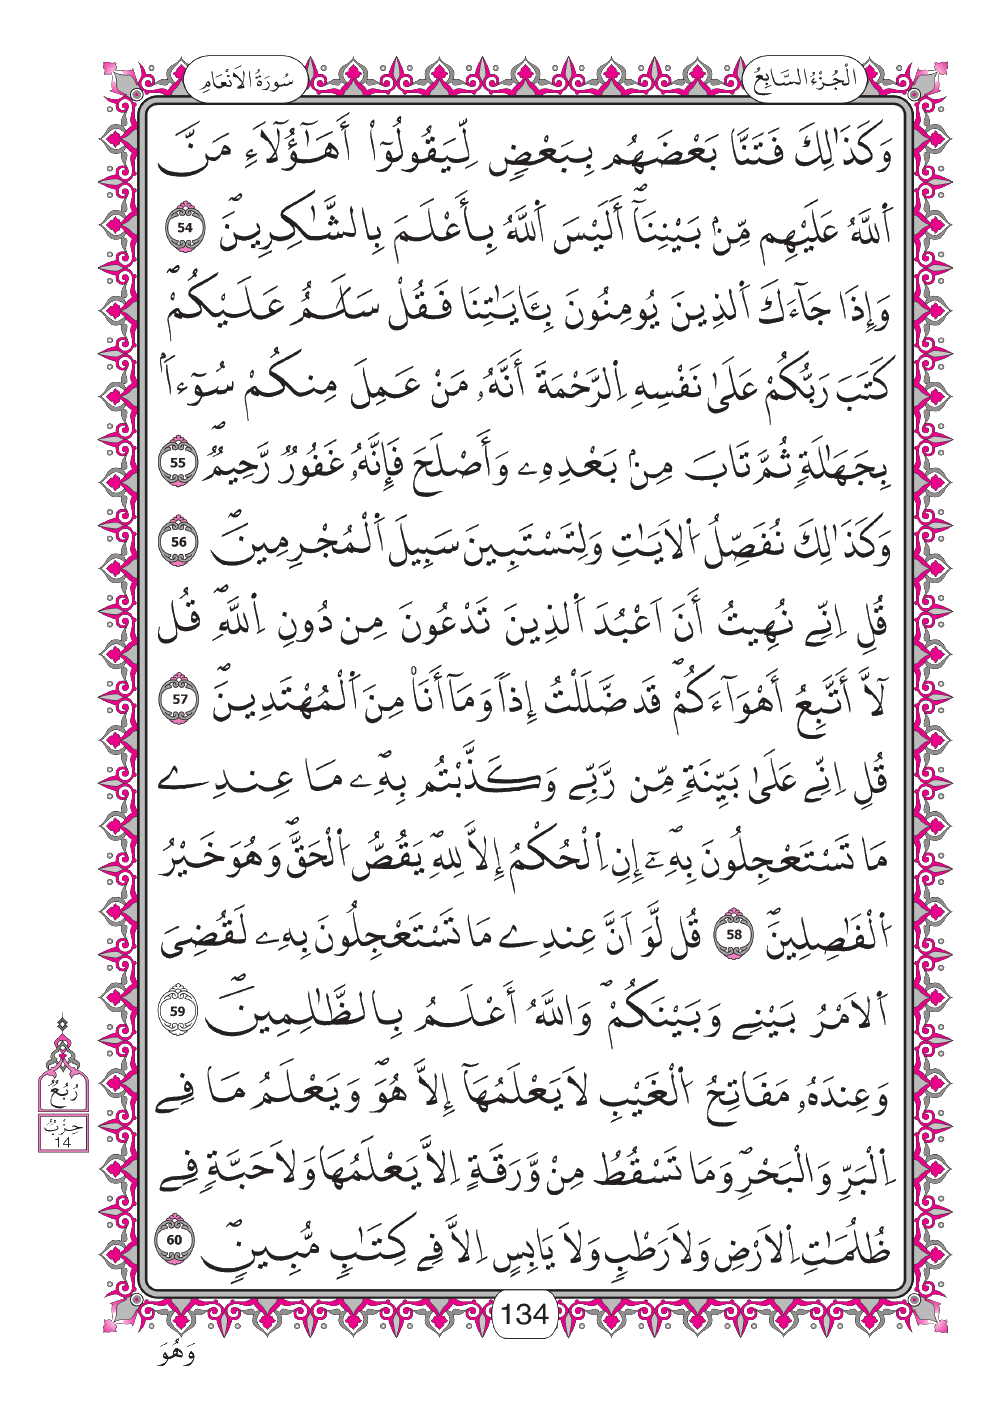 الْجُزْءُ السَّابِعُ
سُورَةُ الَانْعَامِ
وَكَذَٰلِكَ فَتَنَّا بَعْضَهُم بِبَعْضٍ لِّيَقُولُوٓاْ أَهَٰٓؤُلَآءِ مَنَّ
اَ۬للَّهُ عَلَيْهِم مِّنۢ بَيْنِنَآۖ أَلَيْسَ اَ۬للَّهُ بِأَعْلَمَ بِالشَّٰكِرِينَۖ 54
وَإِذَا جَآءَكَ اَ۬لذِينَ يُومِنُونَ بِـَٔايَٰتِنَا فَقُلْ سَلَٰمٌ عَلَيْكُمْۖ
كَتَبَ رَبُّكُمْ عَلَىٰ نَفْسِهِ اِ۬لرَّحْمَةَ أَنَّهُۥ مَنْ عَمِلَ مِنكُمْ سُوٓءاَۢ
بِجَهَٰلَةٍ ثُمَّ تَابَ مِنۢ بَعْدِهِۦ وَأَصْلَحَ فَإِنَّهُۥ غَفُورٌ رَّحِيمٌۖ 55
وَكَذَٰلِكَ نُفَصِّلُ اُ۬لَايَٰتِ وَلِتَسْتَبِينَ سَبِيلَ اَ۬لْمُجْرِمِينَۖ 56
قُلِ اِنِّے نُهِيتُ أَنَ اَعْبُدَ اَ۬لذِينَ تَدْعُونَ مِن دُونِ اِ۬للَّهِۖ قُل
لَّآ أَتَّبِعُ أَهْوَآءَكُمْۖ قَد ضَّلَلْتُ إِذاٗ وَمَآ أَنَا۠ مِنَ اَ۬لْمُهْتَدِينَۖ 57
قُلِ اِنِّے عَلَىٰ بَيِّنَةٖ مِّن رَّبِّے وَكَذَّبْتُم بِهِۦۖ مَا عِندِے
مَا تَسْتَعْجِلُونَ بِهِۦٓۖ إِنِ اِ۬لْحُكْمُ إِلَّا لِلهِۖ يَقُصُّ اُ۬لْحَقَّۖ وَهُوَ خَيْرُ
اُ۬لْفَٰصِلِينَۖ 58 قُل لَّوَ اَنَّ عِندِے مَا تَسْتَعْجِلُونَ بِهِۦ لَقُضِيَ
اَ۬لَامْرُ بَيْنِے وَبَيْنَكُمْۖ وَاللَّهُ أَعْلَمُ بِالظَّٰلِمِينَۖ 59
وَعِندَهُۥ مَفَاتِحُ اُ۬لْغَيْبِ لَا يَعْلَمُهَآ إِلَّا هُوَۖ وَيَعْلَمُ مَا فِے
اِ۬لْبَرِّ وَالْبَحْرِۖ وَمَا تَسْقُطُ مِنْ وَّرَقَةٍ اِلَّا يَعْلَمُهَا وَلَا حَبَّةٖ فِے
ظُلُمَٰتِ اِ۬لَارْضِ وَلَا رَطْبٖ وَلَا يَابِسٍ اِلَّا فِے كِتَٰبٖ مُّبِينٖۖ 60
رُبُعُ
حِزْبُ
14
134
وَهُوَ